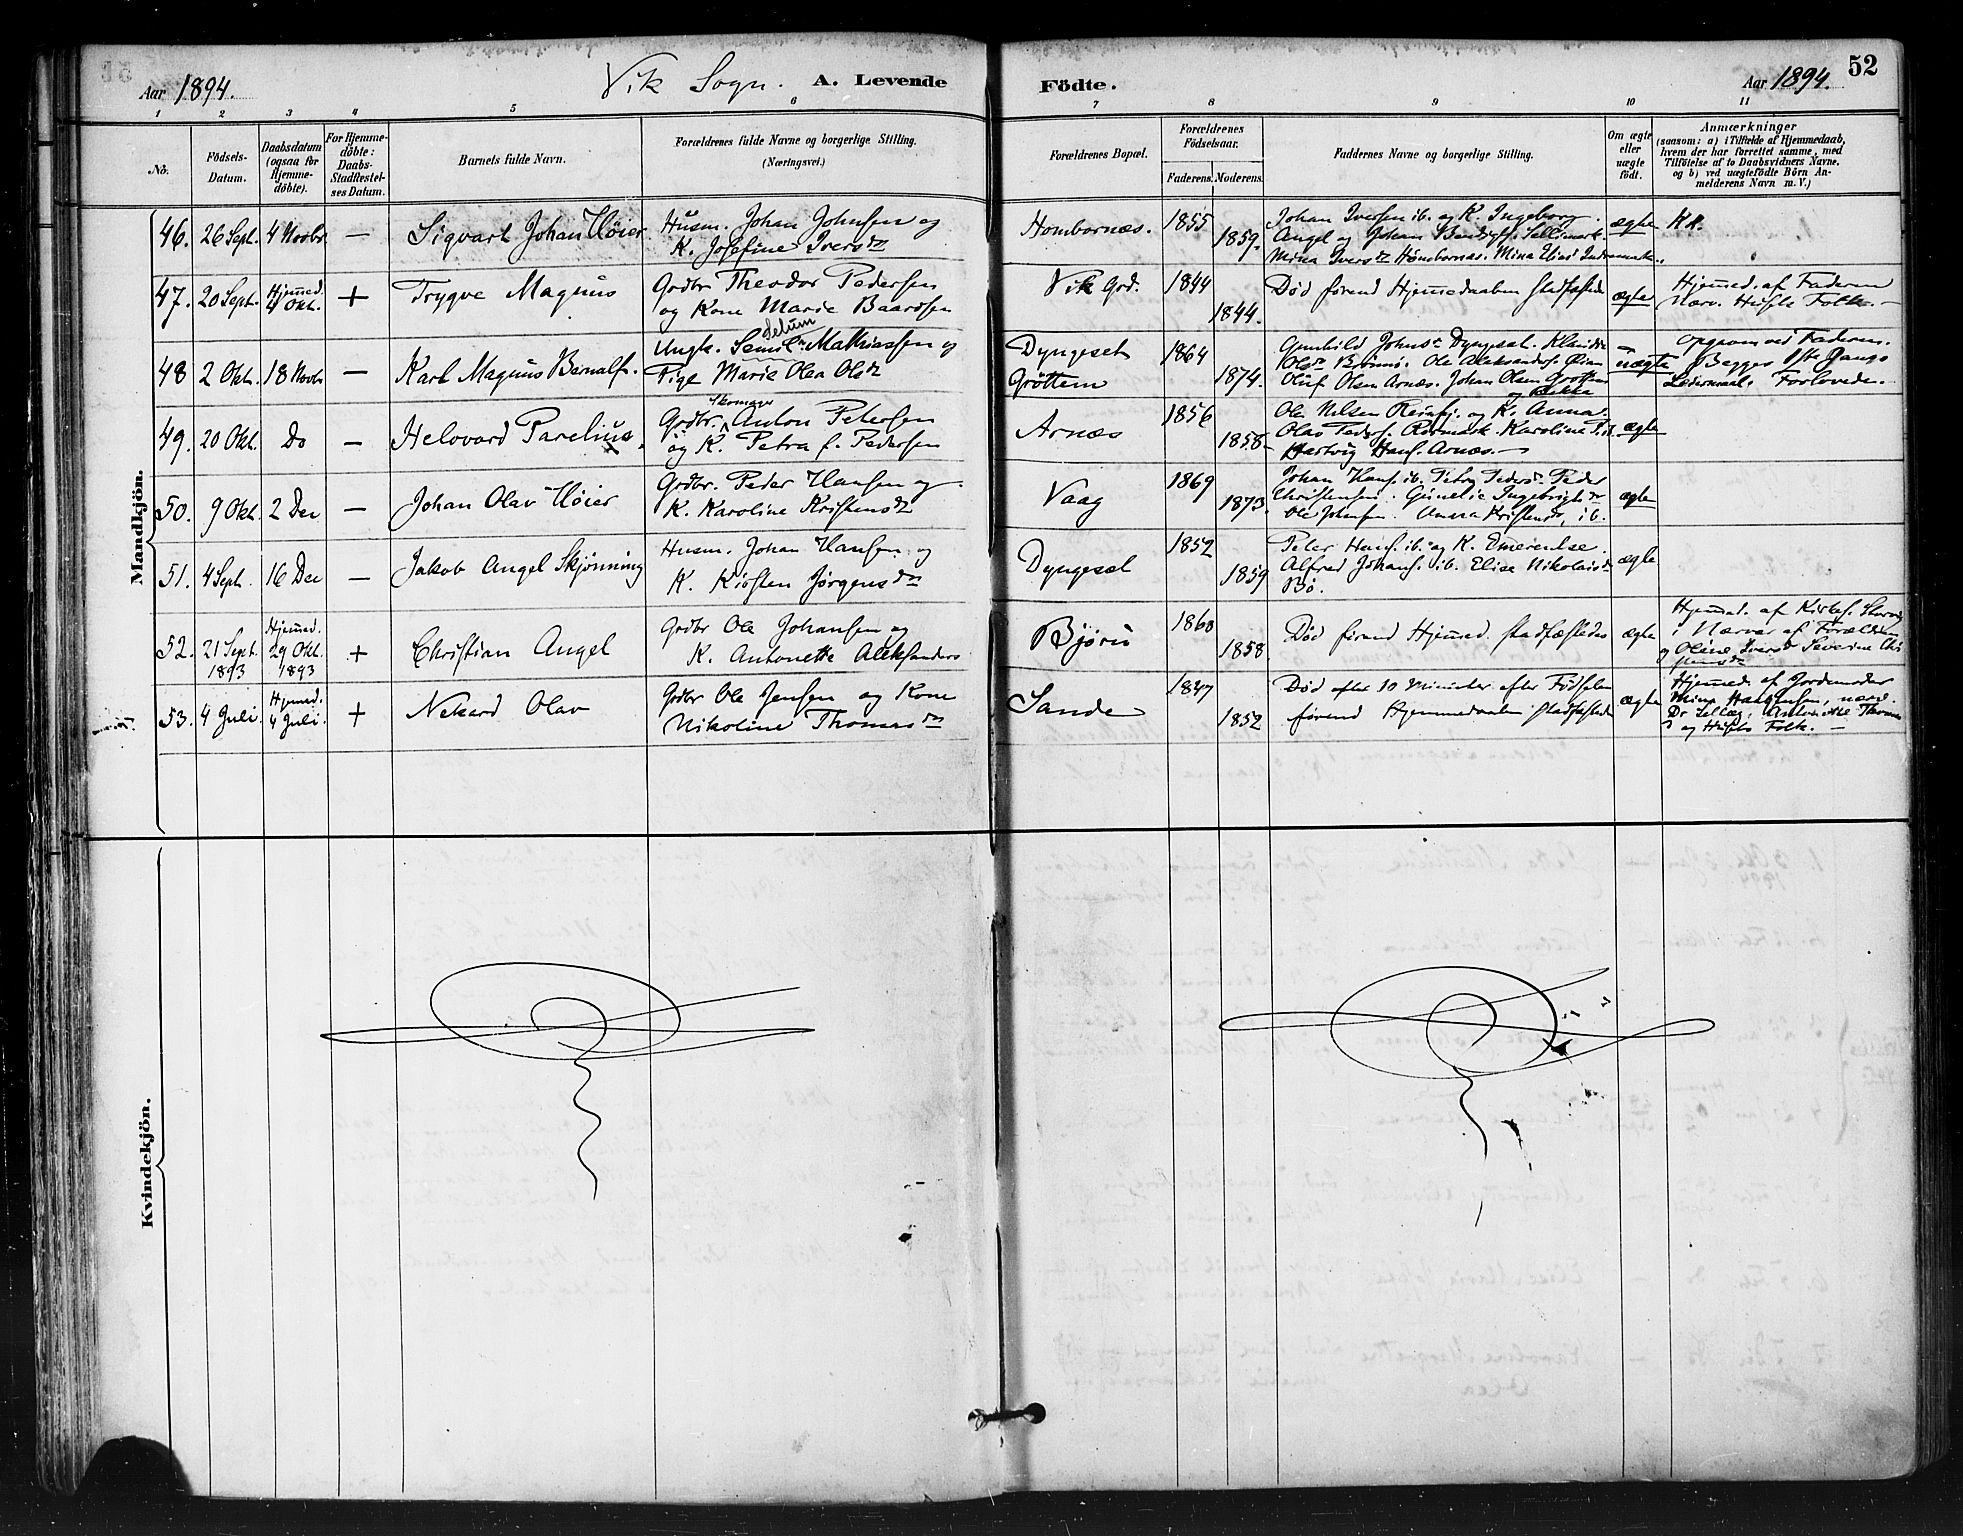 Aar 1894. Vik Sogn. A. Levende Födte. Aar 1894. 52
1 2 3 4 5 6 7 8 9 10 11
No.
Födsels-Datum.
Daabsdatum (ogsaa for Hjemme-döbte).
For Hjemme-döbte: Daabs-Stadfæstelses Datum.
Barnets fulde Navn.
Forældrenes fulde Navne og borgerlige Stilling. (Næringsvei.)
Forældrenes Bopæl.
Forældrenes Födselsaar.
Faderens. Moderens.
Faddernes Navne og borgerlige Stilling.
Om ægte eller uægte födt.
Anmærkninger
(saasom: a) i Tilfælde af Hjemmedaab,
hvem der har forrettet samme, med
Tilföielse af to Daabsvidners Navne,
og b) ved uægtefödte Börn An-
melderens Navn m. V.)
Mandkjön.
46. 26 Sept. 4 Novbr — Sigvart Johan Høier
Husm. Johan Johnsen og
K. Josefine Iversdr
Hombornæs. 1855 1859.
Johan Iversen ib. og K. Ingeborg.
Angel og Johan
Mina Iversdr Hombornæs.
ægte
47. 20 Sept. Hjemmed. 4 Okt. + Trygve Magnus
Grdbr Theodor Pedersen
og Kone Marie Baardsen
Vik Grd. 1844 1844.
Død førend Hjemmedaaben stadfæstede
ægte
Hjemmed. af Faderen
Nærv. Husets Folk. —
48 2 Okt. 18 Novbr — Karl Magnus
Ungk. Mathiassen og
Pige Marie Olea Olsdr
Dyngeset
Grøttem
1864 1874.
Gunhild Johnsdr Dyngeset.
Oluf Olsen Arnæs. Johan Olsen Grøttem
uægte
Opgivne ved Faderen.
Begges 1ste Gangs
Leiermaal. Forlovede. —
49. 20 Okt. Do — Helovard Parelius
Grdbr. Skomager Anton Petersen
og K. Petra f. Pedersen
Arnæs 1856 1858
Ole Nilsen og K. Anna.
Hartvig Hans. Arnæs. —
ægte
50. 9 Okt. 2 Dec — Johan Olav Høier
Grdbr. Peder Hansen og
K. Karoline Kristensdr
Vaag 1869 1873.
Johan Hans. ib. Petra Pedersdr Peder
Christensen. Ingebrigtsdr
Ole Johnsen. Anna Kristensdr, ib.
ægte
51. 4 Sept. 16 Dec — Jakob Angel Skjønning
Husm. Johan Hansen og
K. Jørgensdr
Dyngeset 1852 1859
Peter Hans. ib. og K. Emerentse.
Alfred Johans. ib. Elise Nikolaisdr
Bø.
ægte
52. 21 Sept. 1893 Hjemmed. 29 Okt. 1893 + Christian Angel
Grdbr Ole Johansen og
K. Antonette Aleksanders
Bjørn 1860 1858.
Død førend Hjemmed. stadfæstedes
ægte
Hjemmed. af Kirkes.
Nærvær af Forældrene
og Oline Iversdr Severine
53. 4 Juli. Hjemmed. 4 Juli. + Nekard Olav
Grdbr Ole Jensen og Kone
Nikoline Thomasdr
Sande 1847 1852
Død efter 10 Minuter efter Fødselen
førend Hjemmedaaben stadfæstede
ægte
Hjemmed. af Jordemoder
og Husets Folk. —
Kvindekjön.